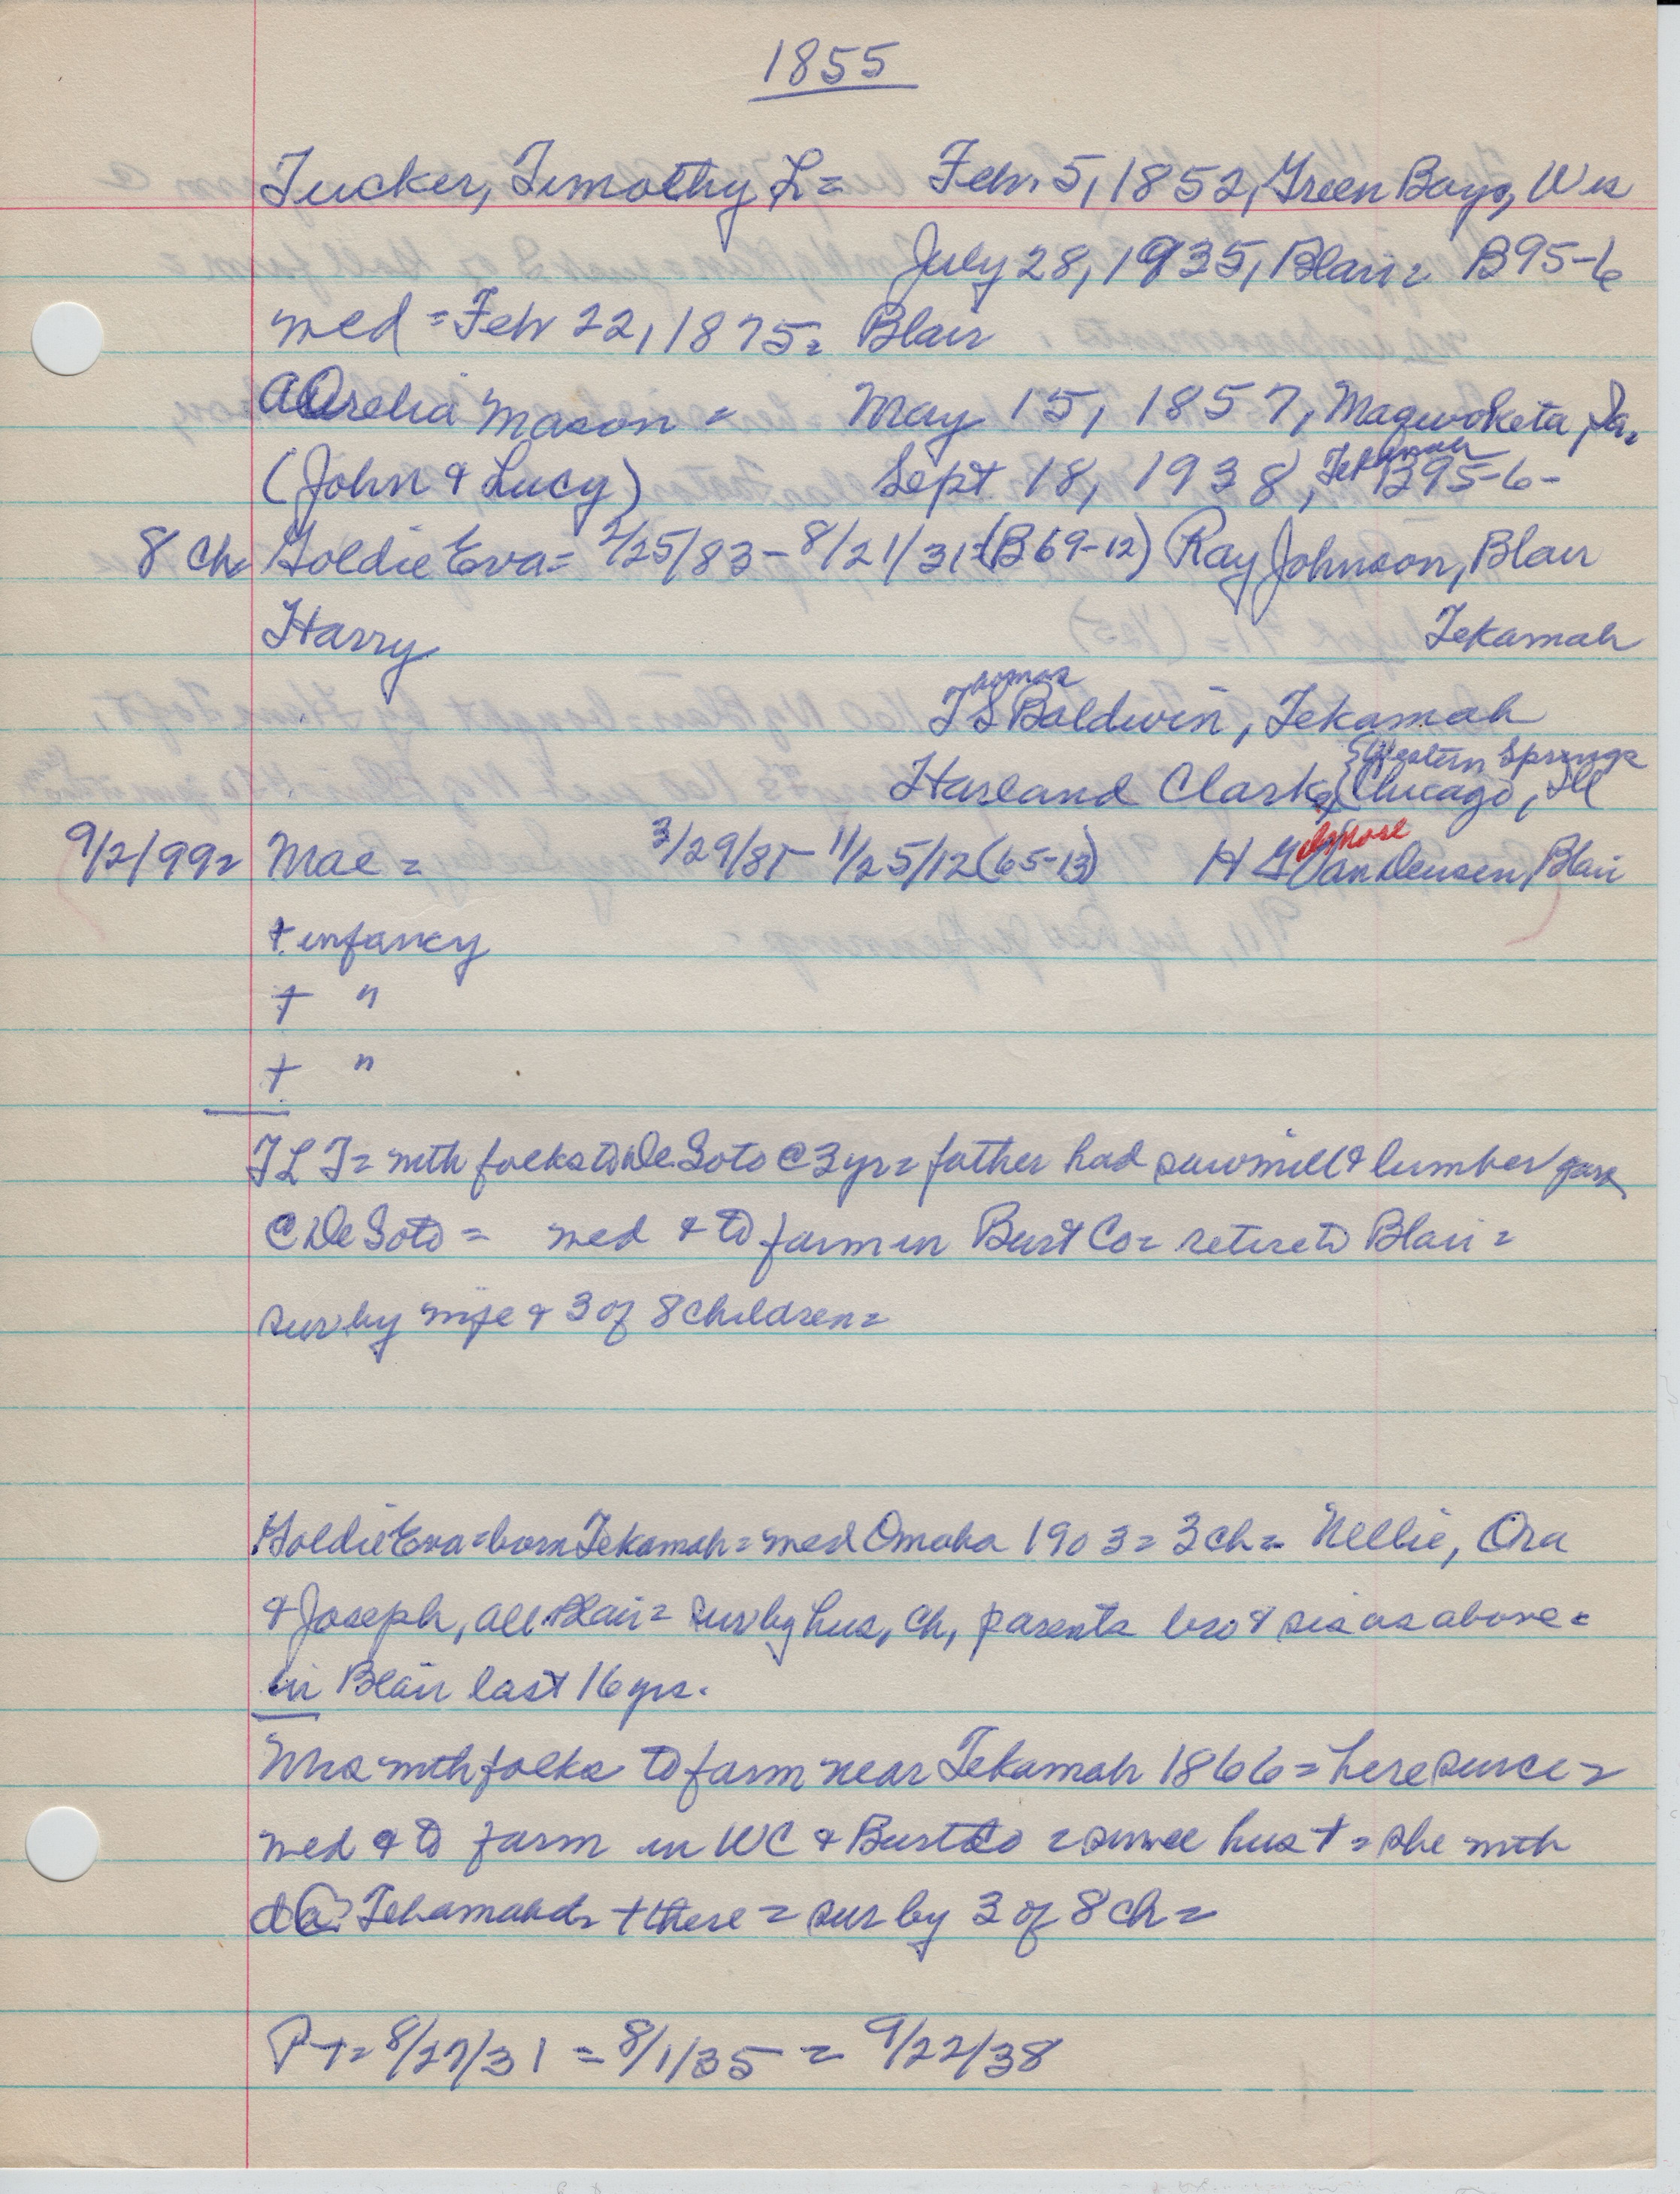 1855
Tucker, Timothy L = Feb. 5, 1852, Green Bay, Wis
July 28, 1935, Blair = B95-6
med = Feb 22, 1875 = Blair
Aurelia Mason = May 15, 1857, Maqwoketa, Ia.
(John & Lucy) Sept 18, 1938, Tekamah B95-6-
8 ch Goldie Eva = 2/25/83 - 8/21/31 = (B69-12) Ray Johnson, Blair
Harry Tekamah
Thomas
T S Baldwin, Tekamah
Western Springs
Harland Clark, Chicago, Ill
9/2/99 = Mae = 3/29/81 - 11/25/12 (65-13) H G VanDeusen, Blair
† infancy
† "
† "
T L T = mth folks to De Soto @ 3 yrs = father had sawmill & lumber yard
@ De Soto = med & to farm in Burt Co = retire to Blair =
sur by wife & 3 of 8 children =
Goldie Eva = born Tekamah = med Omaha 1903 = 3 ch = Nellie, Ora
& Joseph, all Blair = sur by hus, ch, parents bro & sis as above =
in Blair last 16 yrs.
Mrs mth folks to farm near Tekamah 1866 = here since =
med & to farm in WC & Burt Co = since hus † = she mth
Tekamah † there = sur by 3 of 8 ch =
PT = 8/27/31 = 8/1/35 = 9/22/38